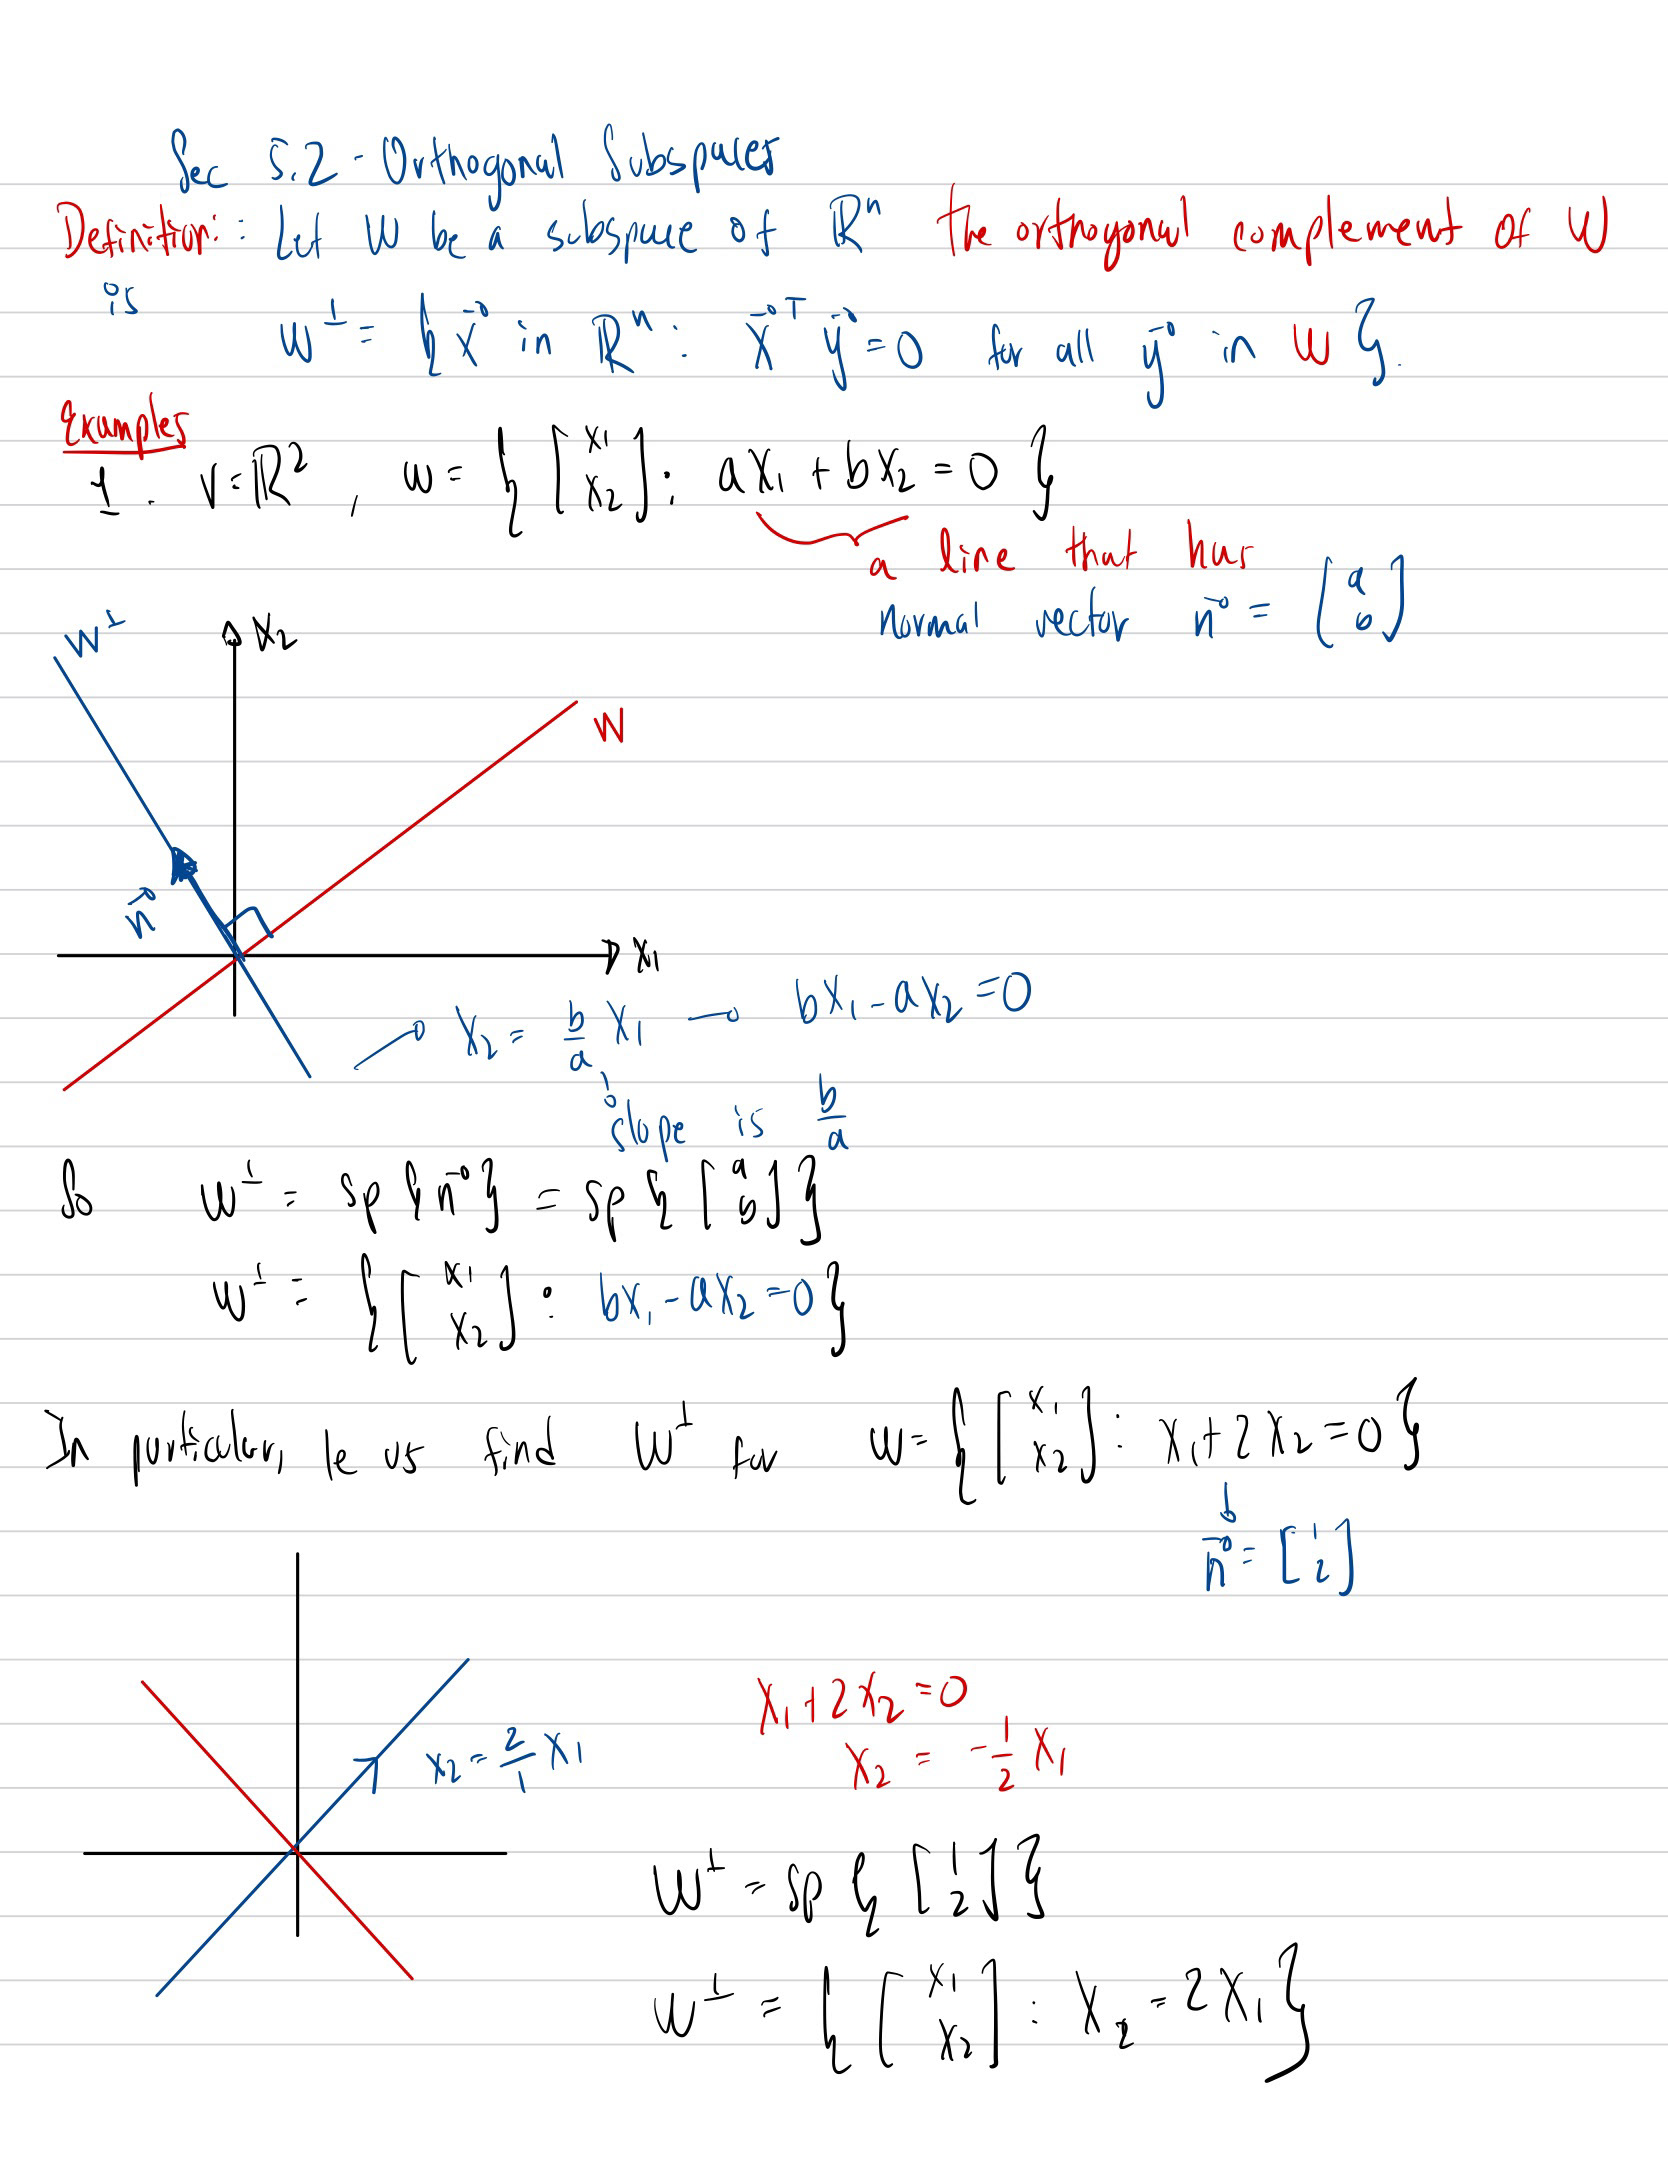 Sec 5.2 - Orthogonal Subspaces
Definition: : Let W be a subspace of ℝⁿ the orthogonal complement of W
is
W^⊥ = { x⃗ in ℝⁿ : x⃗ᵀ y⃗ = 0 for all y⃗ in W }.
Examples
1. V = ℝ², W = { [x₁ x₂] : ax₁ + bx₂ = 0 }
a line that has
normal vector n⃗ = [a b]
W^⊥
x₂
W
n⃗
x₁
→ x₂ = b/a x₁ → bx₁ - ax₂ = 0
slope is b/a
So W^⊥ = sp { n⃗ } = sp { [a b] }
W^⊥ = { [x₁ x₂] : bx₁ - ax₂ = 0 }
In particular, le us find W^⊥ for W = { [x₁ x₂] : x₁ + 2x₂ = 0 }
n⃗ = [1 2]
x₁ + 2x₂ = 0
x₂ = 2/1 x₁
x₂ = -1/2 x₁
W^⊥ = sp { [1 2] }
W^⊥ = { [x₁ x₂] : x₂ = 2x₁ }